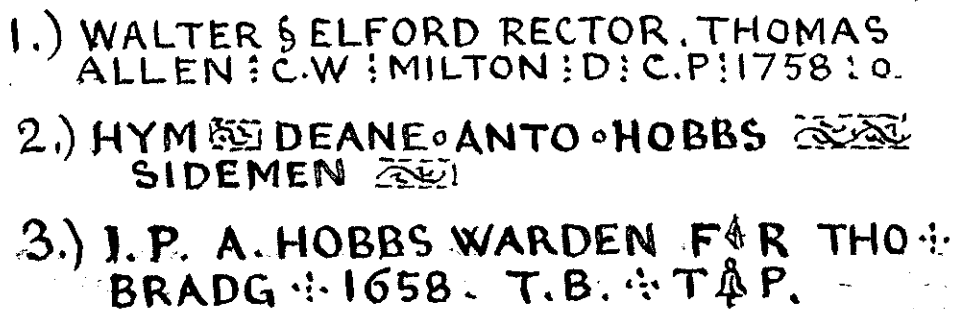 1.) WALTER § ELFORD RECTOR. THOMAS
ALLEN ⁝ C.W ⁝ MILTON ⁝ D ⁝ C.P ⁝ 1758 ⁝ o.
2.) HYM DEANE ∘ ANTO ∘ HOBBS
SIDEMEN
3.) I. P. A. HOBBS WARDEN F R THO ⁘
BRADG ⁘ 1658. T.B. ⁘ T P.